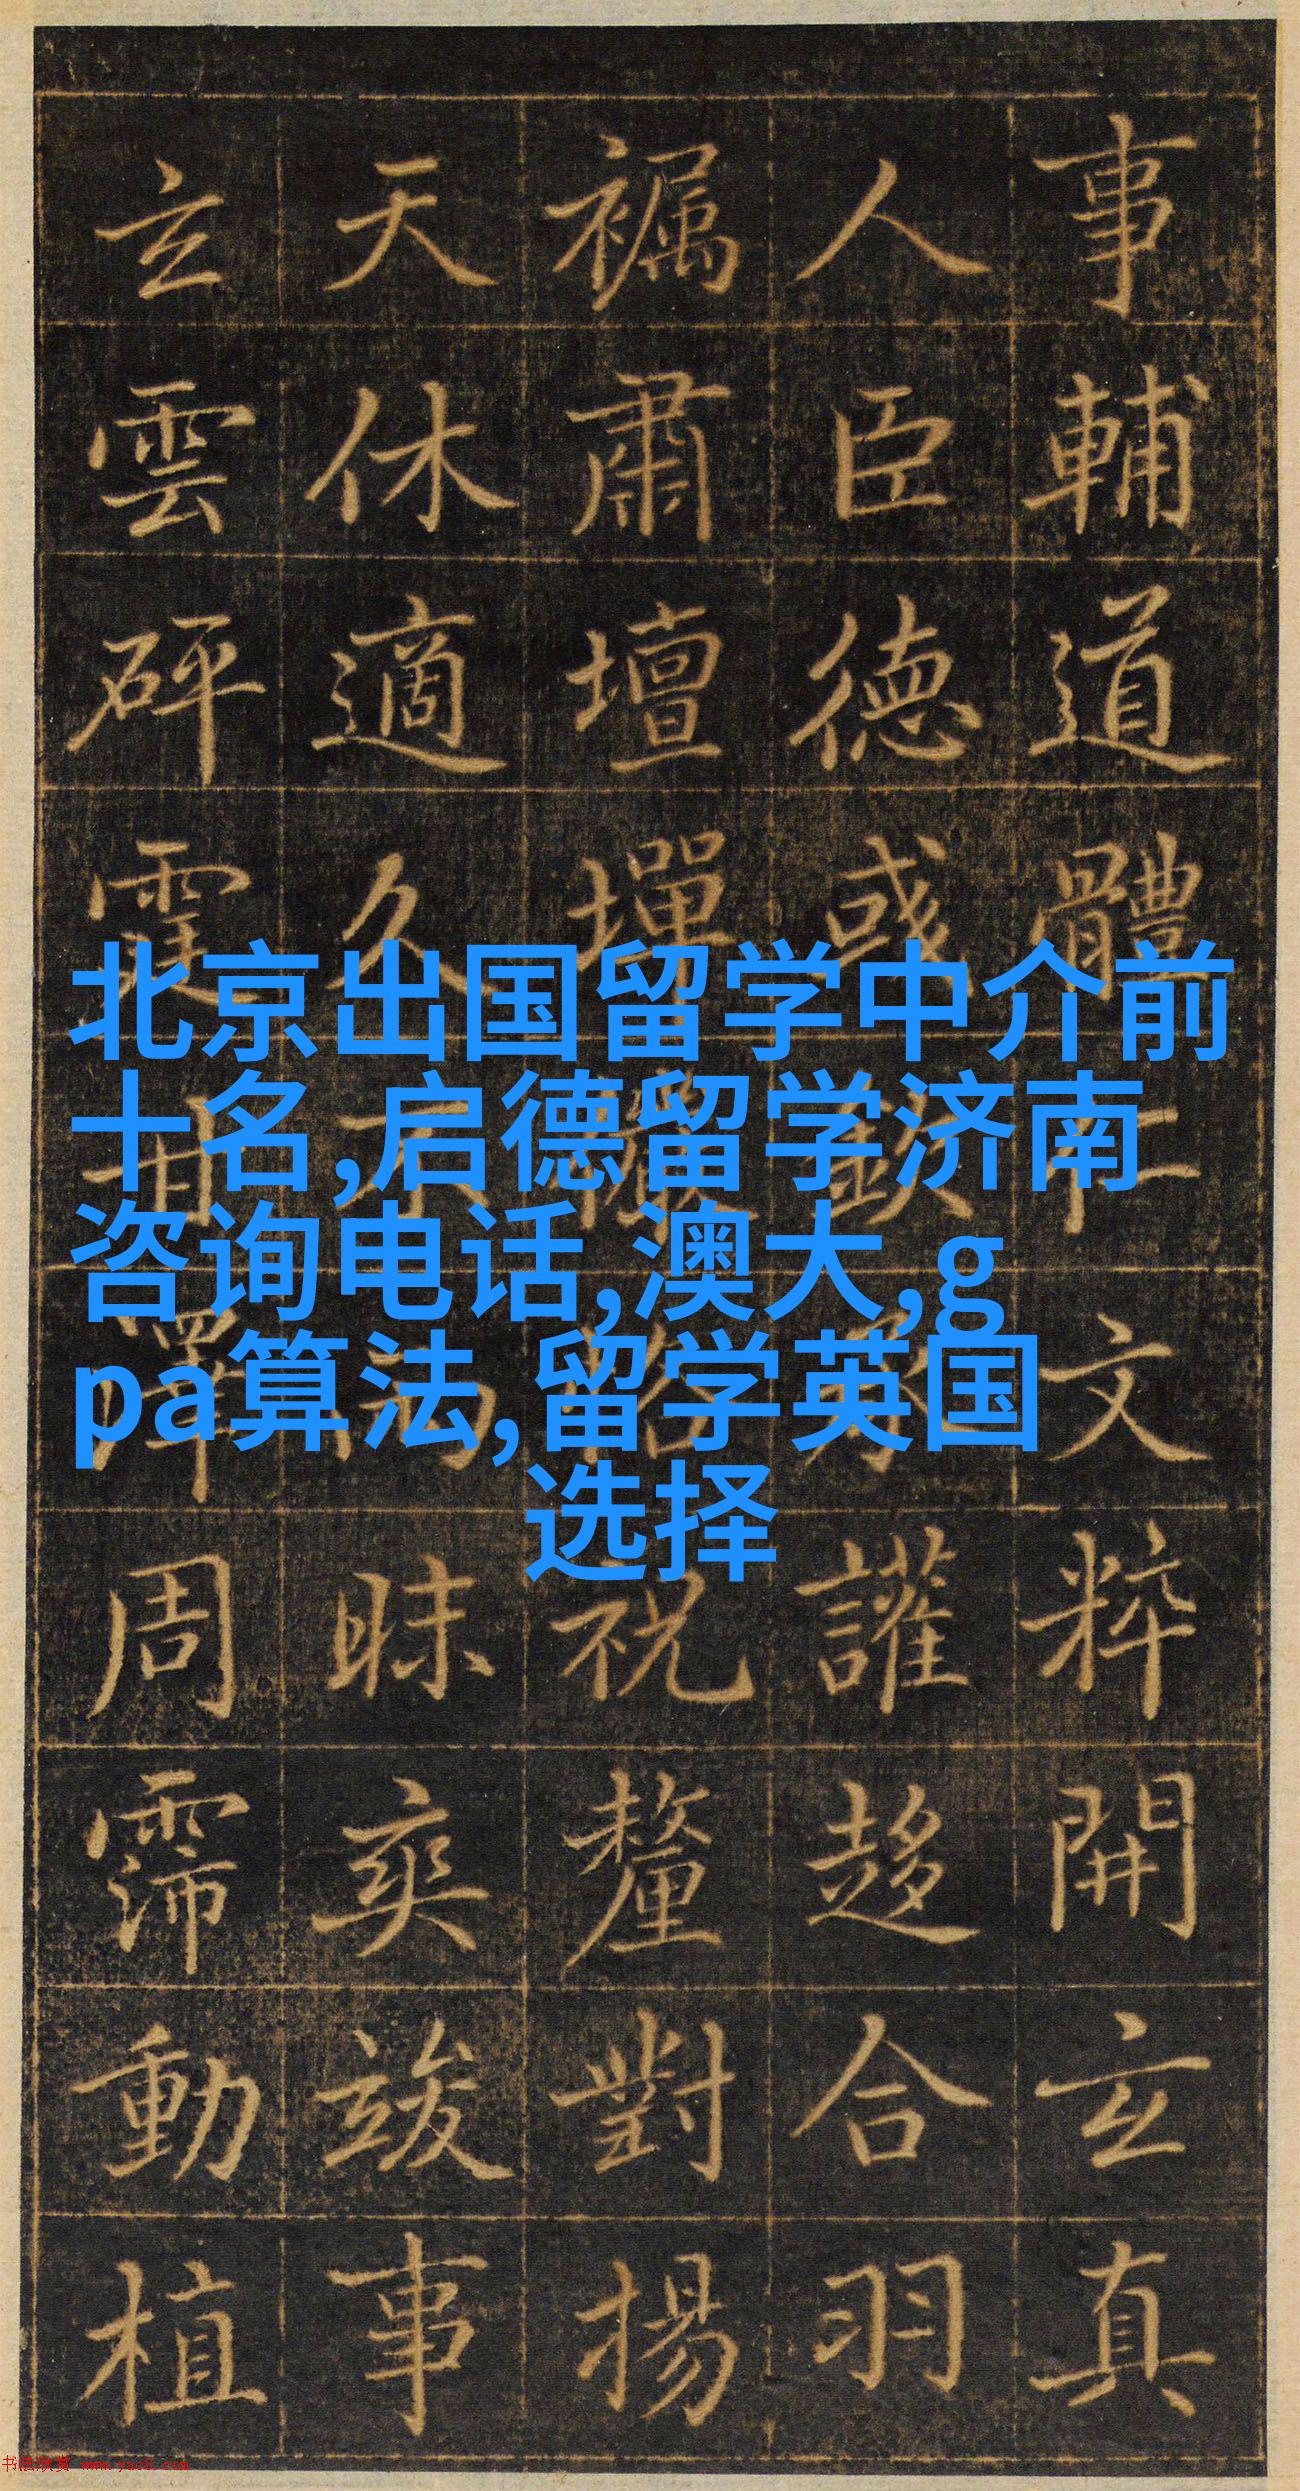 事輔道體仁文粹開玄真
人臣德或欽承讙趍合羽
褐肅壇墠祝釐對揚
天休適久不昧爽竣事
玄雲砰霆甘澤周霈動植
北京出国留学中介前
十名,启德留学济南
咨询电话,澳大,g
pa算法,留学英国
选择
书法欣赏 www.yac8.com